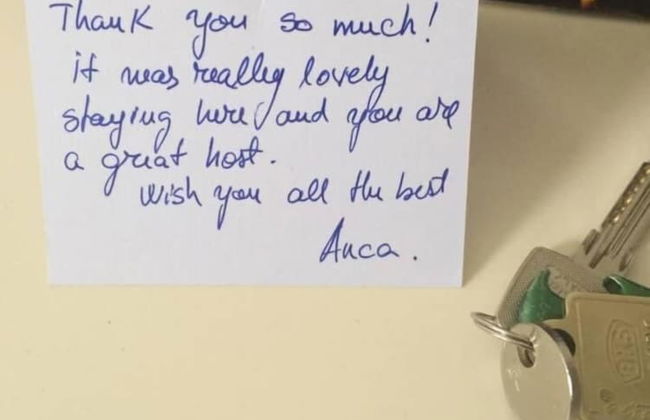 Thank you so much!
it was really lovely
staying here and you are
a great host.
Wish you all the best
Anca.
BKS